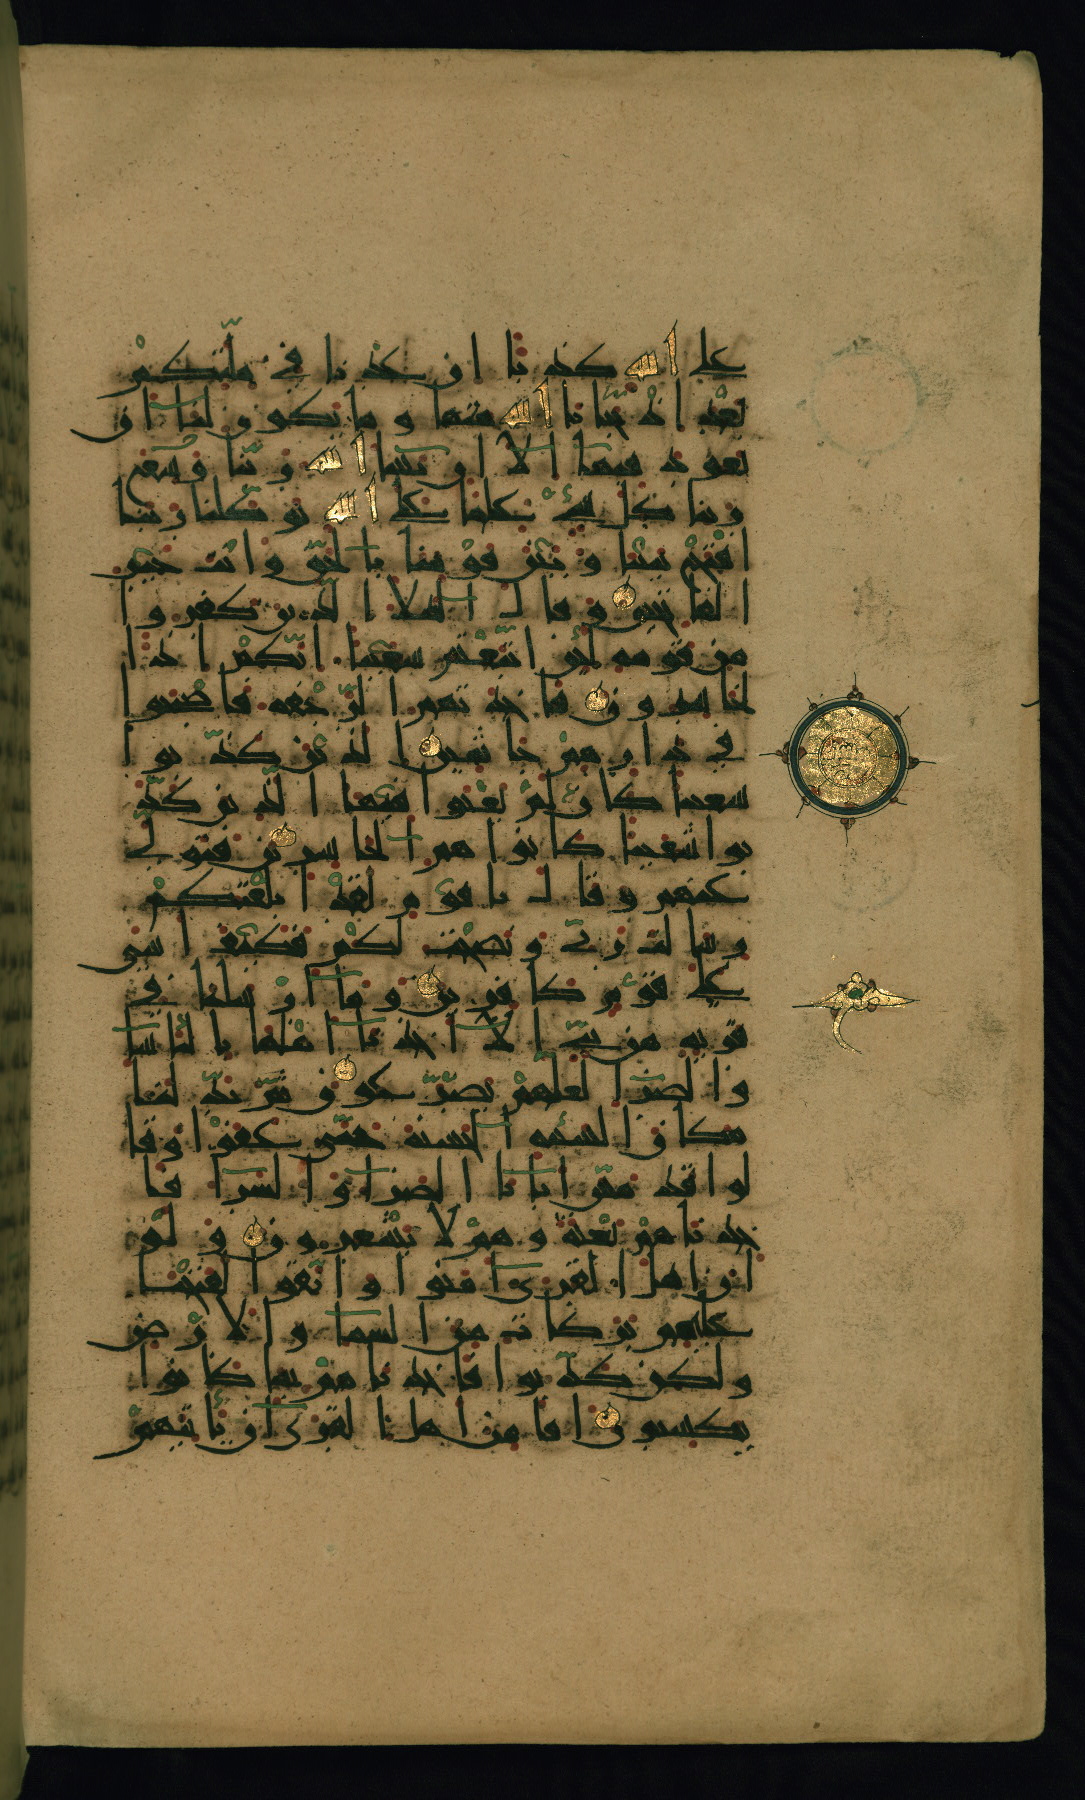 على الله كذبا ان عدنا في ملتكم
بعد اذ نجانا الله منها وما يكون لنا ان
نعود فيها الا ان يشا الله ربنا وسع
ربنا كل شيء علما على الله توكلنا ربنا
افتح بيننا وبين قومنا بالحق وانت خير
الفاتحين وقال الملا الذين كفروا
من قومه لئن اتبعتم شعيبا انكم اذا
لخاسرون فاخذتهم الرجفة فاصبحوا
في دارهم جاثمين الذين كذبوا
شعيبا كان لم يغنوا فيها الذين كذ
بوا شعيبا كانوا هم الخاسرين فتولى
عنهم وقال يا قوم لقد ابلغتكم
رسالت ربي ونصحت لكم فكيف اسى
على قوم كافرين وما ارسلنا في
قرية من نبي الا اخذنا اهلها بالباسا
والضرا لعلهم يضرعون ثم بدلنا
مكان السيئة الحسنة حتى عفوا وقا
لوا قد مس ابانا الضرا والسرا فا
خذناهم بغتة وهم لا يشعرون ولو
ان اهل القرى امنوا واتقوا لفتحنا
عليهم بركات من السما والارض
ولكن كذبوا فاخذناهم بما كانوا
يكسبون افامن اهل القرى ان ياتيهم